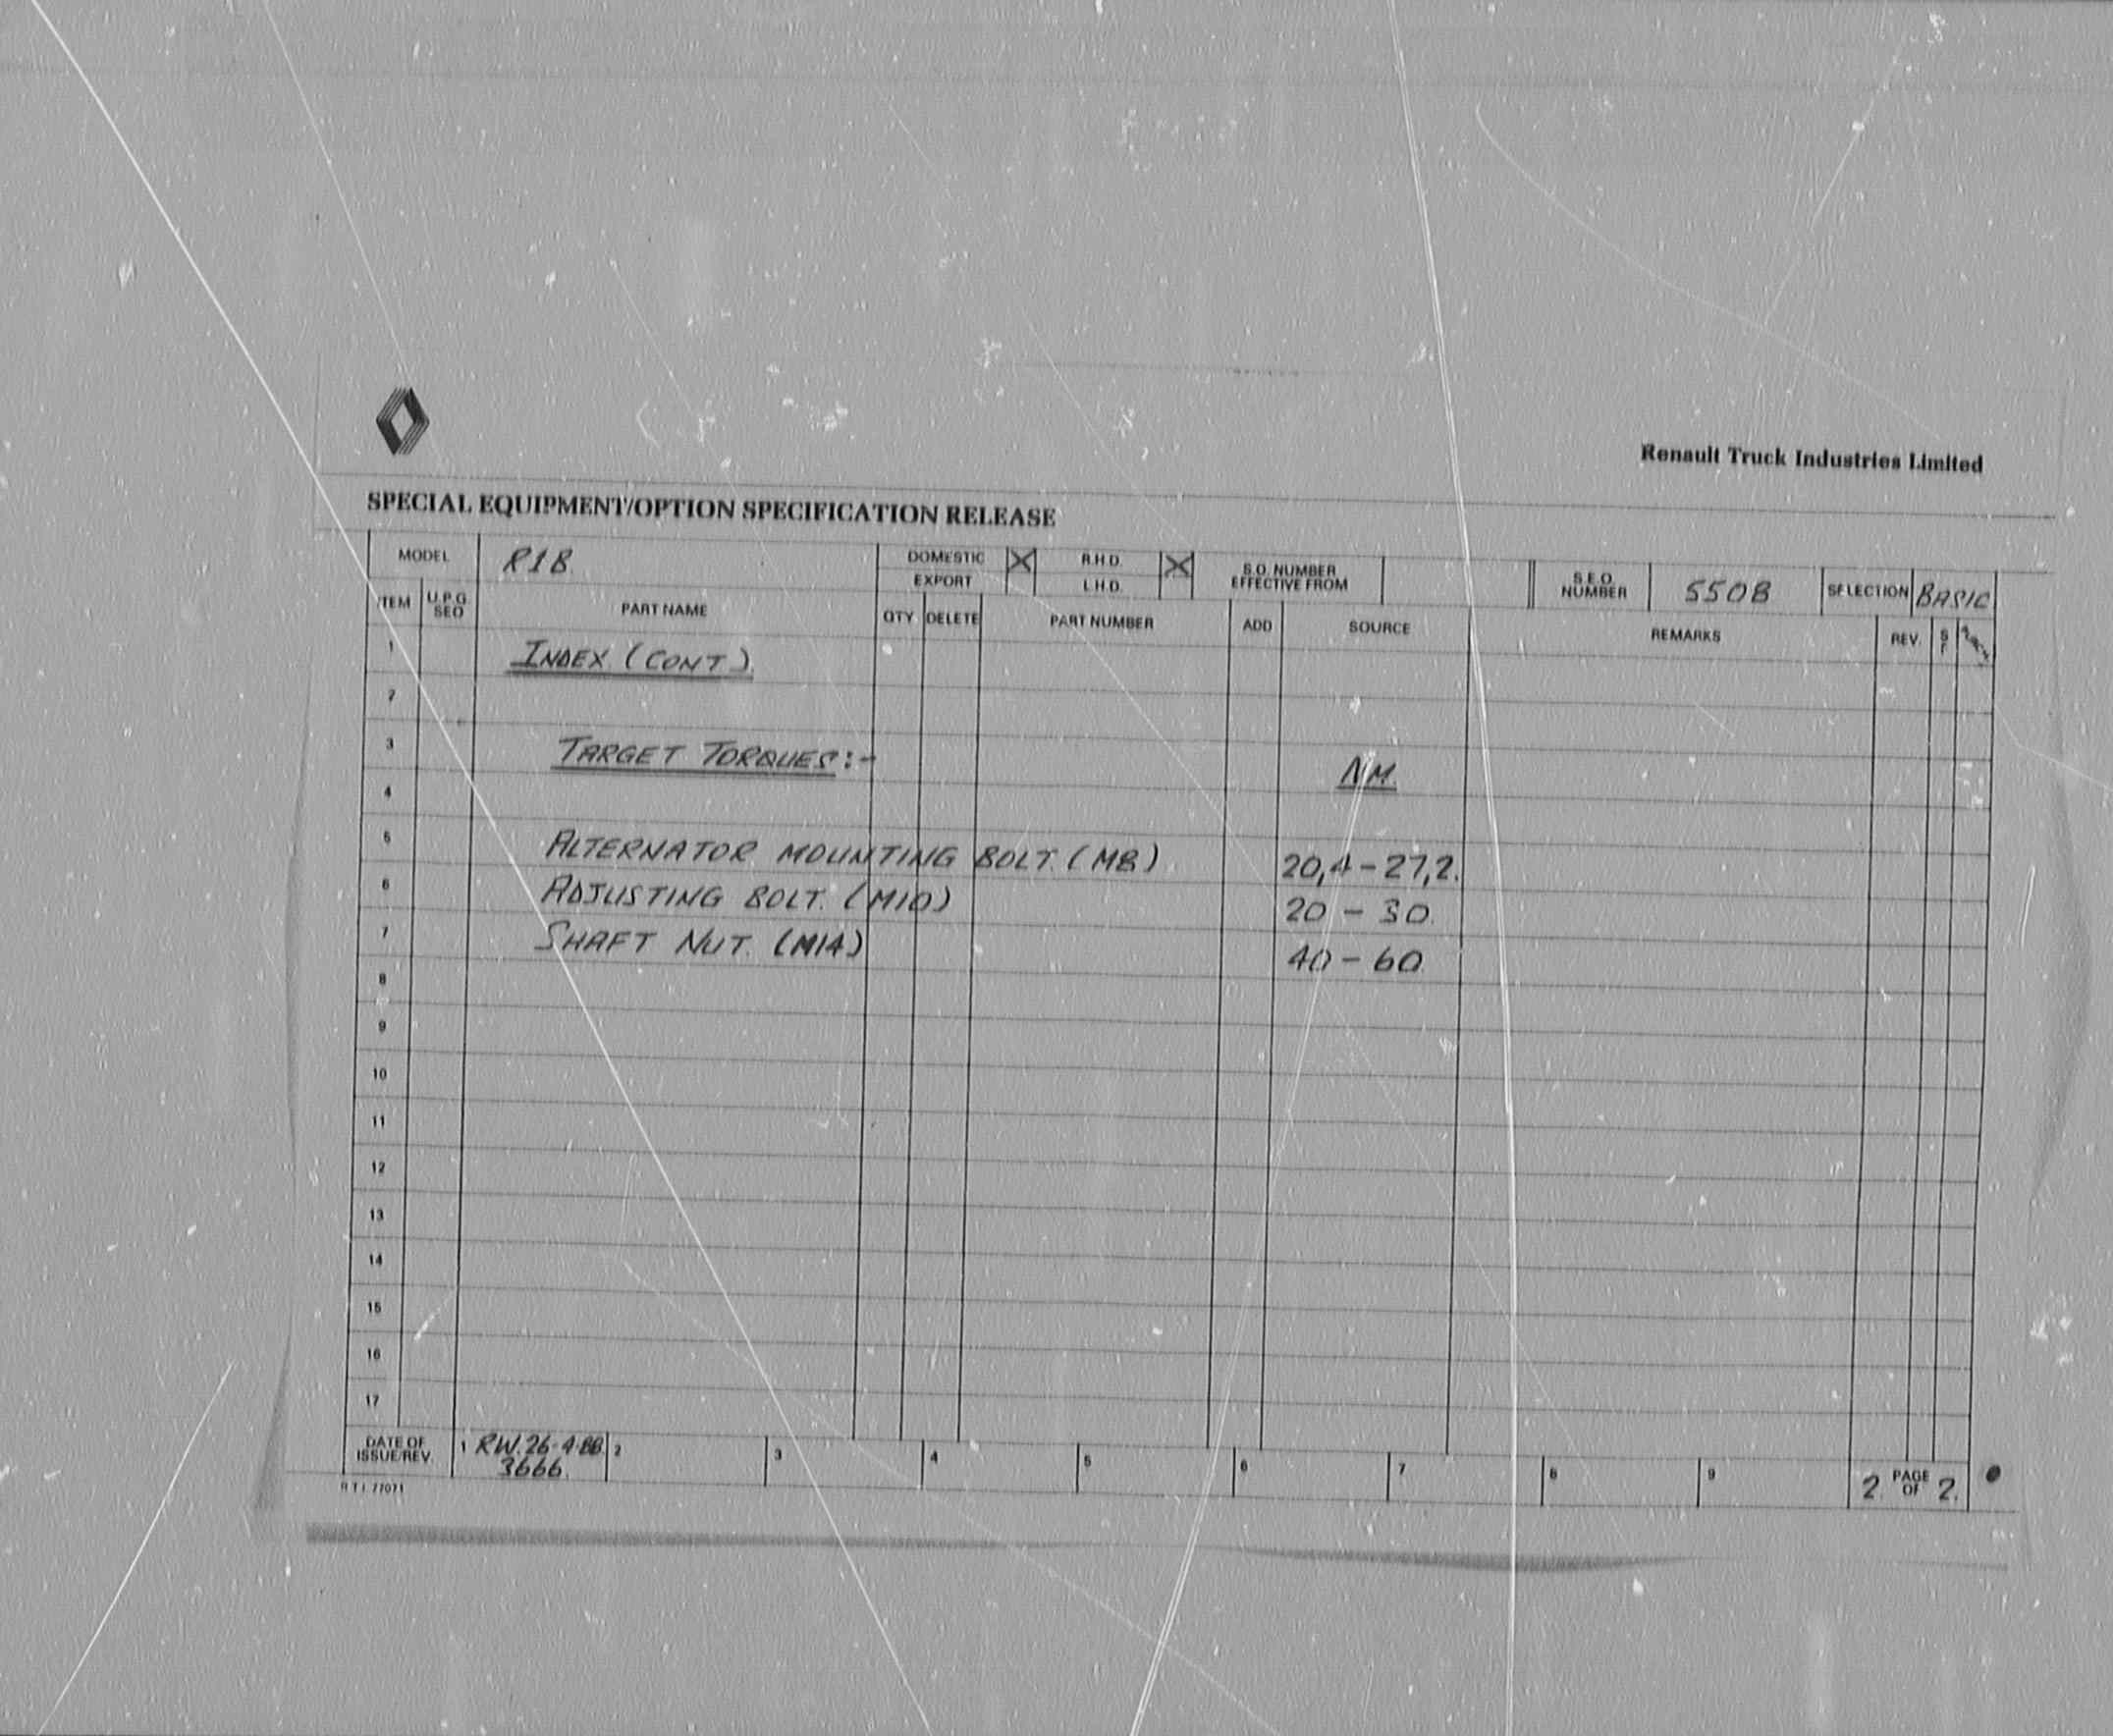 Renault Truck Industries Limited
SPECIAL EQUIPMENT/OPTION SPECIFICATION RELEASE
MODEL R18 DOMESTIC X R.H.D. X S.O. NUMBER EFFECTIVE FROM S.E.O. NUMBER 5508 SELECTION BASIC
EXPORT L.H.D.
ITEM U.P.G. SEO PART NAME QTY DELETE PART NUMBER ADD SOURCE REMARKS REV.
1 INDEX (CONT).
2
3 TARGET TORQUES:- NM.
4
5 ALTERNATOR MOUNTING BOLT. (M8) 20,4-27,2.
6 ADJUSTING BOLT. (M10) 20 - 30.
7 SHAFT NUT. (M14) 40-60.
8
9
10
11
12
13
14
15
16
17
DATE OF ISSUE/REV. 1 RW.26-4-88. 2 3 4 5 6 7 8 9 2. PAGE OF 2.
3666.
R T I 77071